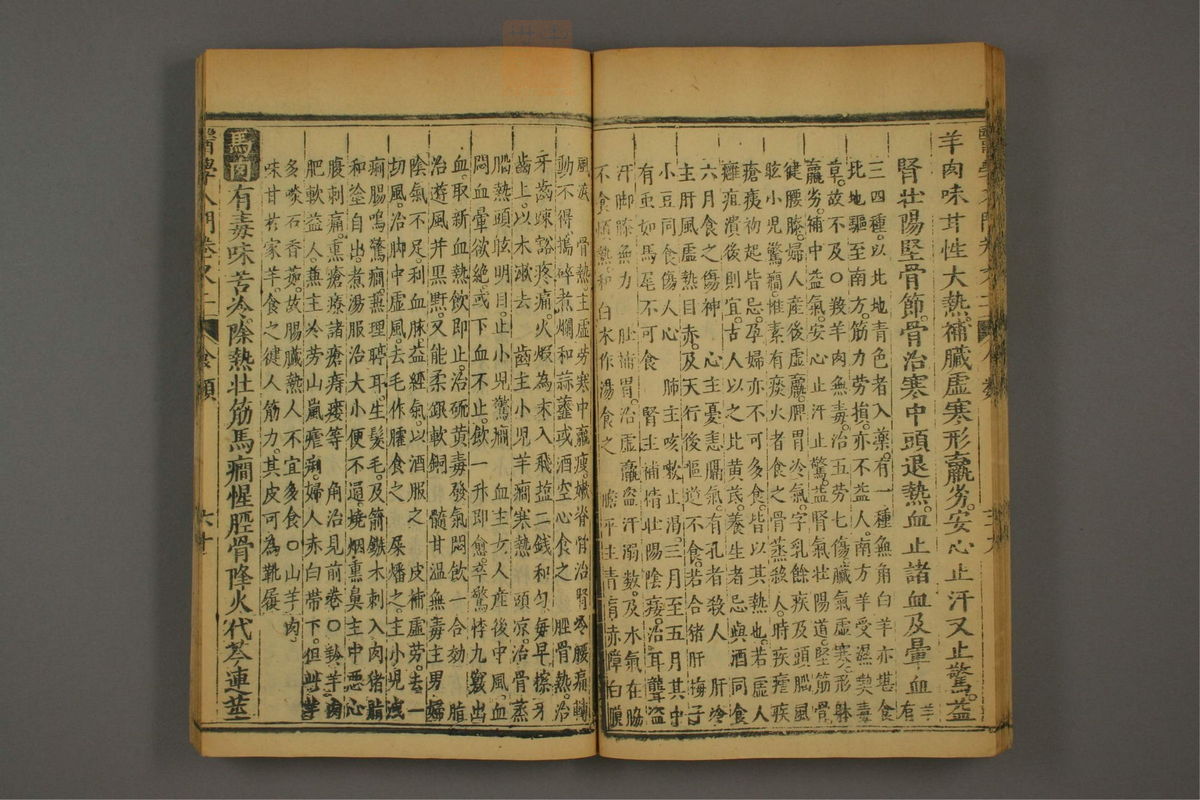 羊肉味甘性大熱補臟虛寒形羸劣安心止汗又止驚益
腎壯陽堅骨節骨治寒中頭退熱血止諸血及暈血羊有
三四種以此地青色者入藥有一種無角白羊亦堪食
北地驅至南方筋力勞損亦不益人南方羊受濕㗖毒
草故不及○羖羊肉無毒治五勞七傷臟氣虛寒形躰
羸劣補中益氣安心止汗止驚益腎氣壯陽道堅筋骨
健腰膝婦人產後虛羸脾胃冷氣字乳餘疾及頭腦風
眩小兒驚癎惟素有痰火者食之骨蒸殺人時疾瘧疾
瘡痍初起皆忌孕婦亦不可多食皆以其熱也若虛人
癰疽潰後則宜古人以之比黄芪養生者忌與酒同食
六月食之傷神 心主憂恚膈氣有孔者殺人 肝冷
主肝風虛熱目赤及天行後嘔逆不食若合猪肝梅子
小豆同食傷人心 肺主咳嗽止渴三月至五月其中
有虫如馬尾不可食 腎主補精壯陽陰痿治耳聾盜
汗脚膝無力 肚補胃治虛羸盜汗溺數及水氣在脇
不食煩熱和白朮作湯食之 膽平主青盲赤障白膜
風淚 骨熱主虛勞寒中羸瘦 脊骨治腎冷腰痛轉
動不得搗碎煮爛和蒜虀或酒空心食之 脛骨熱治
牙齒疎豁疼痛火煅為末入飛鹽二錢和勻每早擦牙
齒上以水漱去 齒主小兒羊癎寒熱 頭凉治骨蒸
腦熱頭眩明目止小兒驚癎 血主女人產後中風血
悶血暈欲絶或下血不止飲一升即愈卒驚悸九竅出
血取新血熱飲即止治硫黄毒發氣悶飲一合効 脂
治遊風并黒䵟又能柔銀軟銅 髓甘温無毒主男婦
陰氣不足利血脉益經氣以酒服之 皮補虛勞去一
切風治脚中虛風去毛作臛食之 屎燔之主小兒洩
痢腸鳴驚癎燕理聤耳生髮毛及箭鏃木刺入肉猪脂
和塗自出煮湯服治大小便不通燒烟熏鼻主中惡心
腹刺痛熏瘡療諸瘡痔瘻等 角治見前卷○羚羊肉
肥軟益人兼主冷勞山嵐瘧痢婦人赤白帶下但此羊
多啖石香薷故腸臟熱人不宜多食○山羊肉
味甘於家羊食之健人筋力其皮可為靴屐
馬肉有毒味苦冷除熱壯筋馬癎惺脛骨降火代芩連莖
醫學入門卷之二 食類 六十